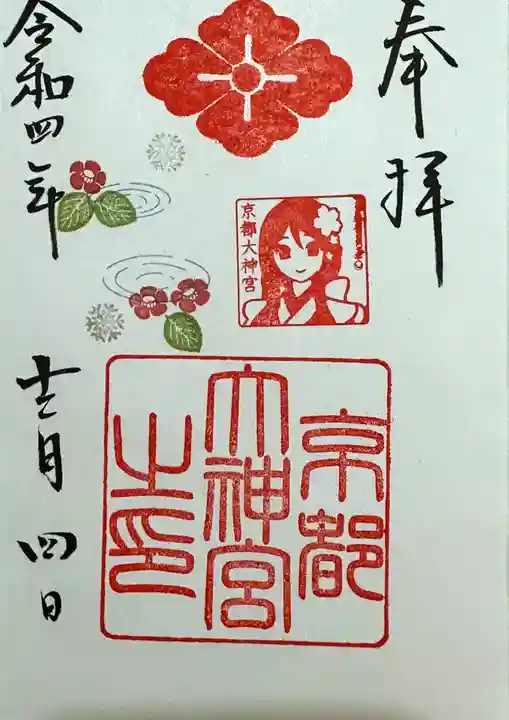 奉拝
京都大神宮
京都
大神宮
之印
令和四年
十二月四日